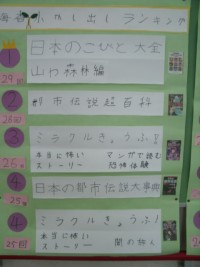 し出しランキング
1
日本のこびと大全
山や森林編
29回
2
都市伝説超百科
28回
3
ミラクルきょうふ!
本当に怖い マンガで読む
ストーリー 恐怖体験
25回
4
日本の都市伝説大事典
4
ミラクルきょうふ!
本当に怖い
ストーリー
25回